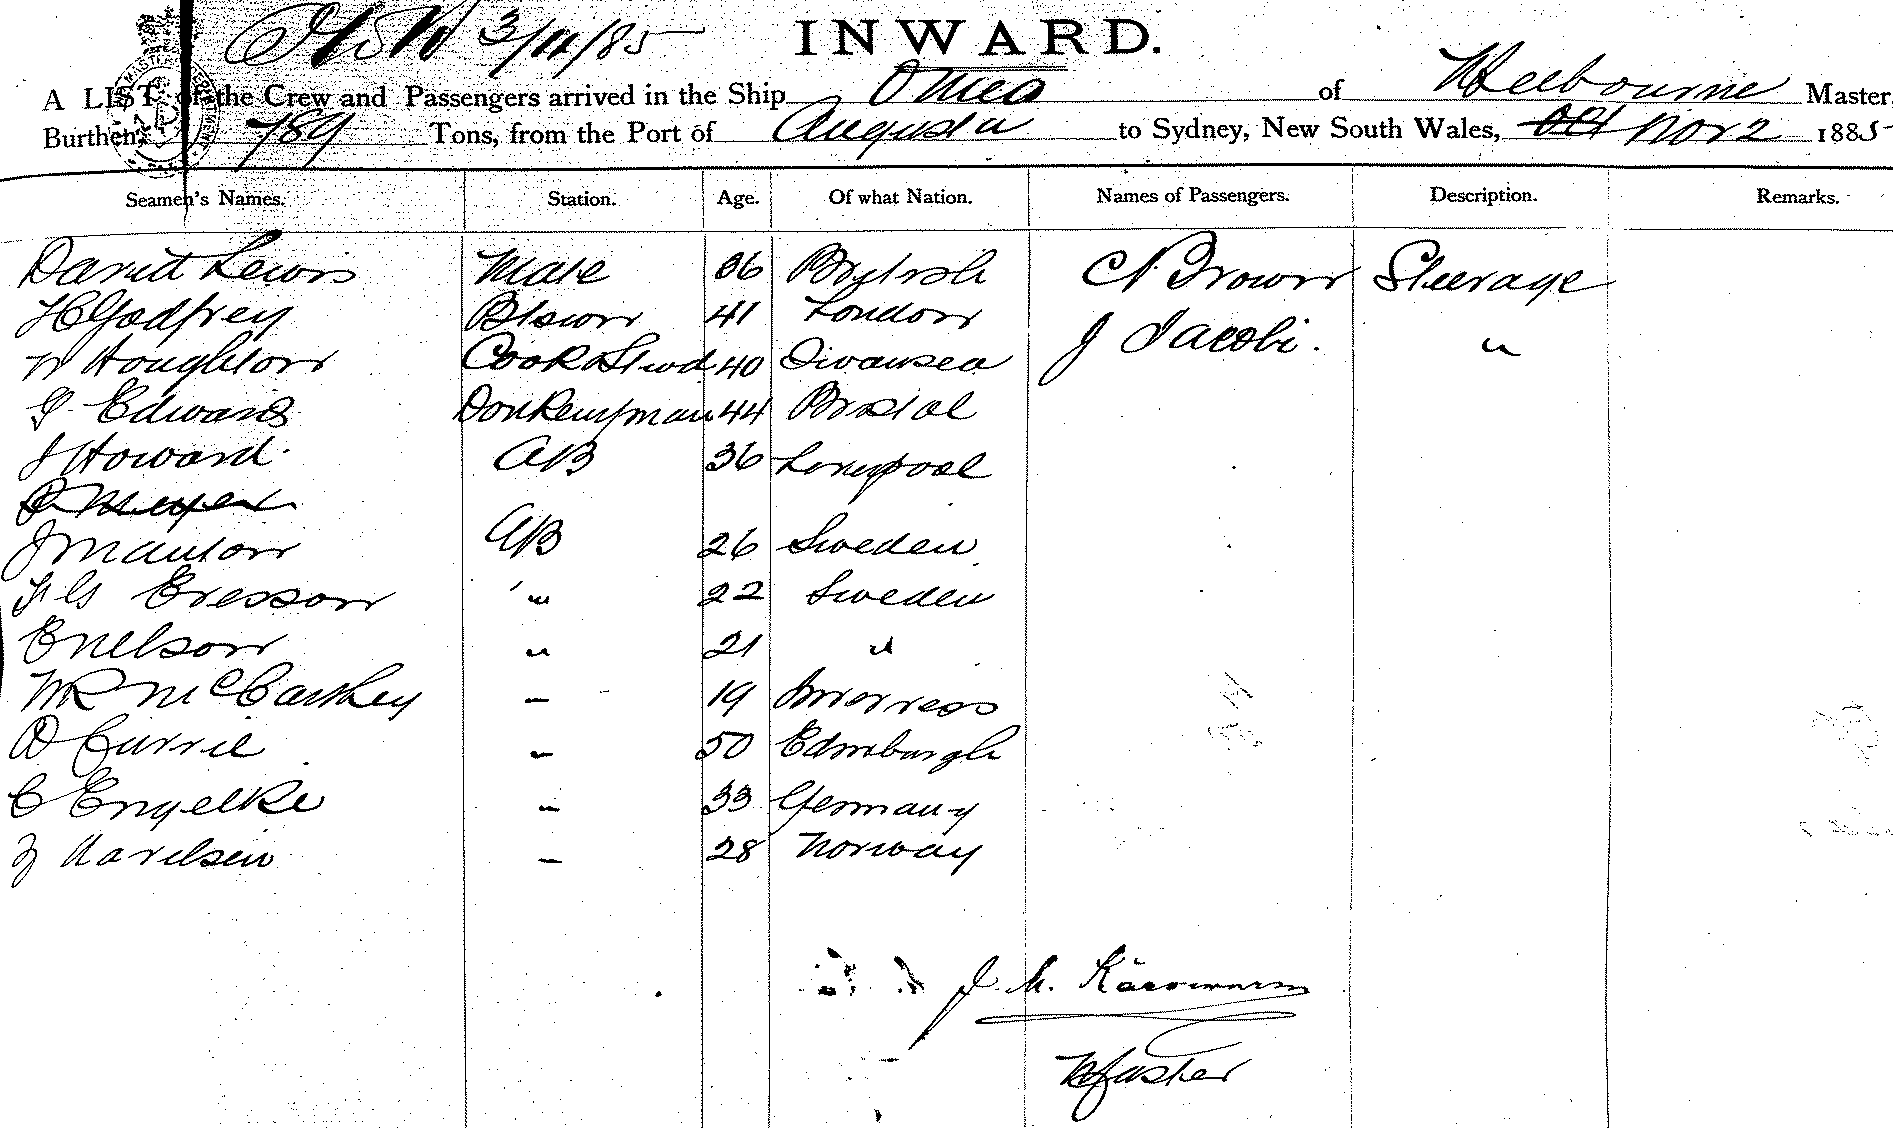 3/11/85
INWARD.
A LIST of the Crew and Passengers arrived in the Ship of Melbourne Master,
Burthen 789 Tons, from the Port of Augusta to Sydney, New South Wales, Oct Nov 2 1885
Seamen's Names. Station. Age. Of what Nation. Names of Passengers. Description. Remarks.
David Lewis Mate 36 British C N Brown Steerage
H Godfrey Btswn 41 London J Jacobi. "
W Houghton Cook & Stwd 40 Swansea
Edwards Donkeyman 44 Bristol
J Howard. AB 36 Liverpool
Meyer
J Manton AB 26 Sweden
Eresson " 22 Sweden
E Nelson " 21 "
W R McCarthey - 19
D Currie - 50 Edinburgh
C Engelke - 33 Germany
- 28 Norway
J. M.
Master